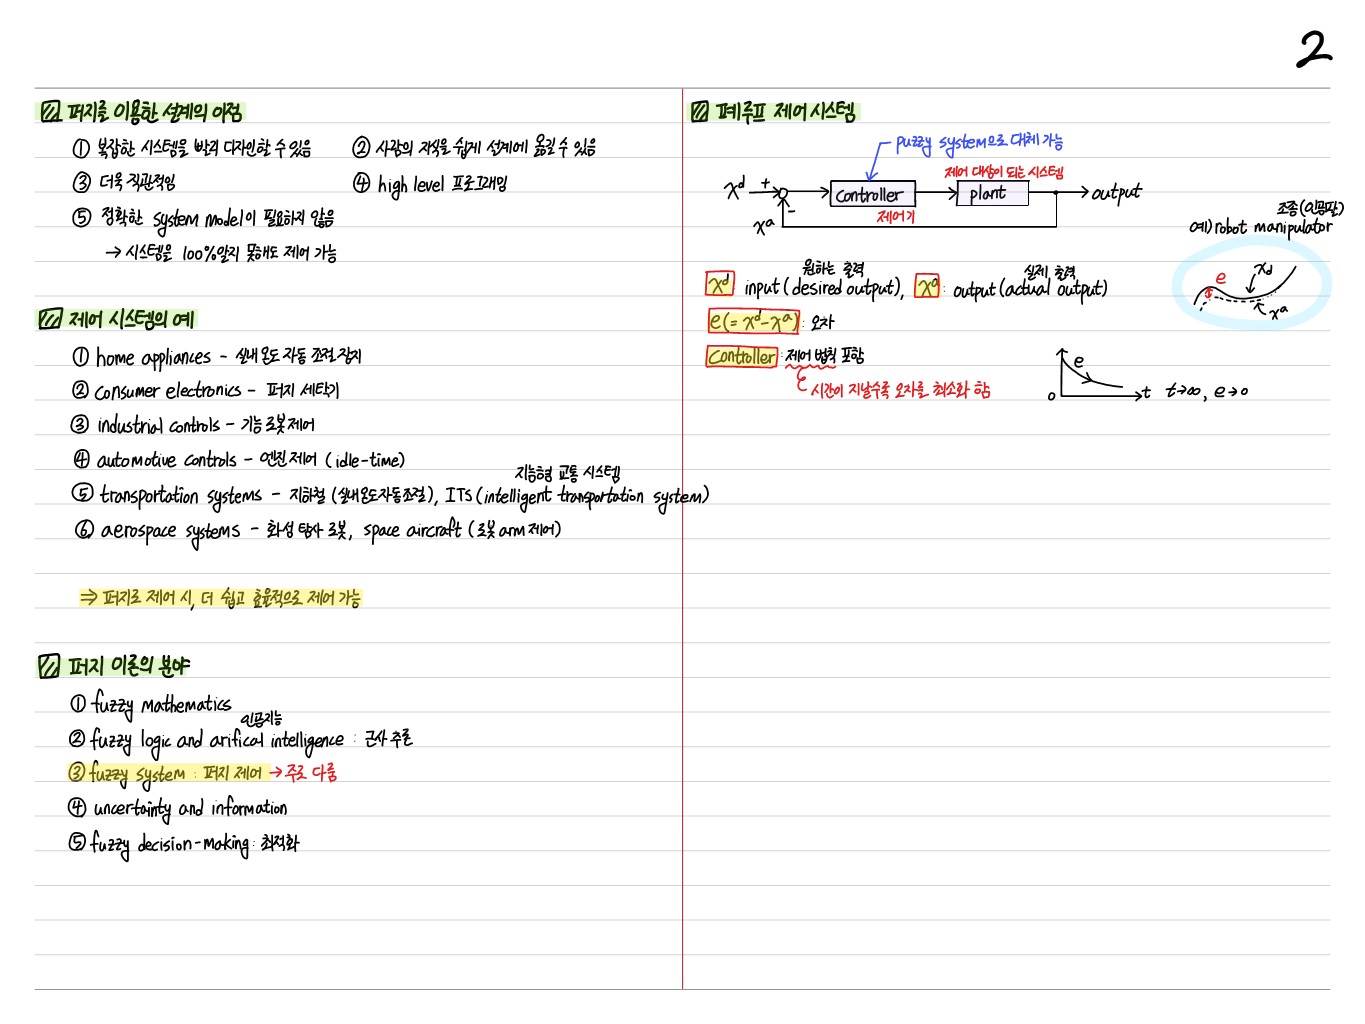 2
퍼지를 이용한 설계의 이점
① 복잡한 시스템을 빨리 디자인할 수 있음
② 사람의 지식을 쉽게 설계에 옮길 수 있음
③ 더욱 직관적임
④ high level 프로그래밍
⑤ 정확한 system model이 필요하지 않음
→ 시스템을 100% 알지 못해도 제어 가능
제어 시스템의 예
① home appliances - 실내 온도 자동 조절 장치
② consumer electronics - 퍼지 세탁기
③ industrial controls - 기능 로봇 제어
④ automotive controls - 엔진 제어 (idle-time)
지능형 교통 시스템
⑤ transportation systems - 지하철 (실내온도자동조절), ITS (intelligent transportation system)
⑥ aerospace systems - 화성 탐사 로봇, space aircraft (로봇 arm 제어)
⇒ 퍼지로 제어 시, 더 쉽고 효율적으로 제어 가능
퍼지 이론의 분야
① fuzzy mathematics
인공지능
② fuzzy logic and arifical intelligence : 근사 추론
③ fuzzy system : 퍼지 제어 → 주로 다룸
④ uncertainty and information
⑤ fuzzy decision-making : 최적화
폐루프 제어 시스템
puzzy system으로 대체 가능
제어 대상이 되는 시스템
x^d + controller plant output
제어기
x^a -
조종 (인공팔)
예) robot manipulator
e x_d
x^a
원하는 출력 실제 출력
x^d input (desired output), x^a : output (actual output)
e (= x^d - x^a) : 오차
Controller : 제어 법칙 포함
시간이 지날수록 오차를 최소화 함
e
0 t t→∞, e→0